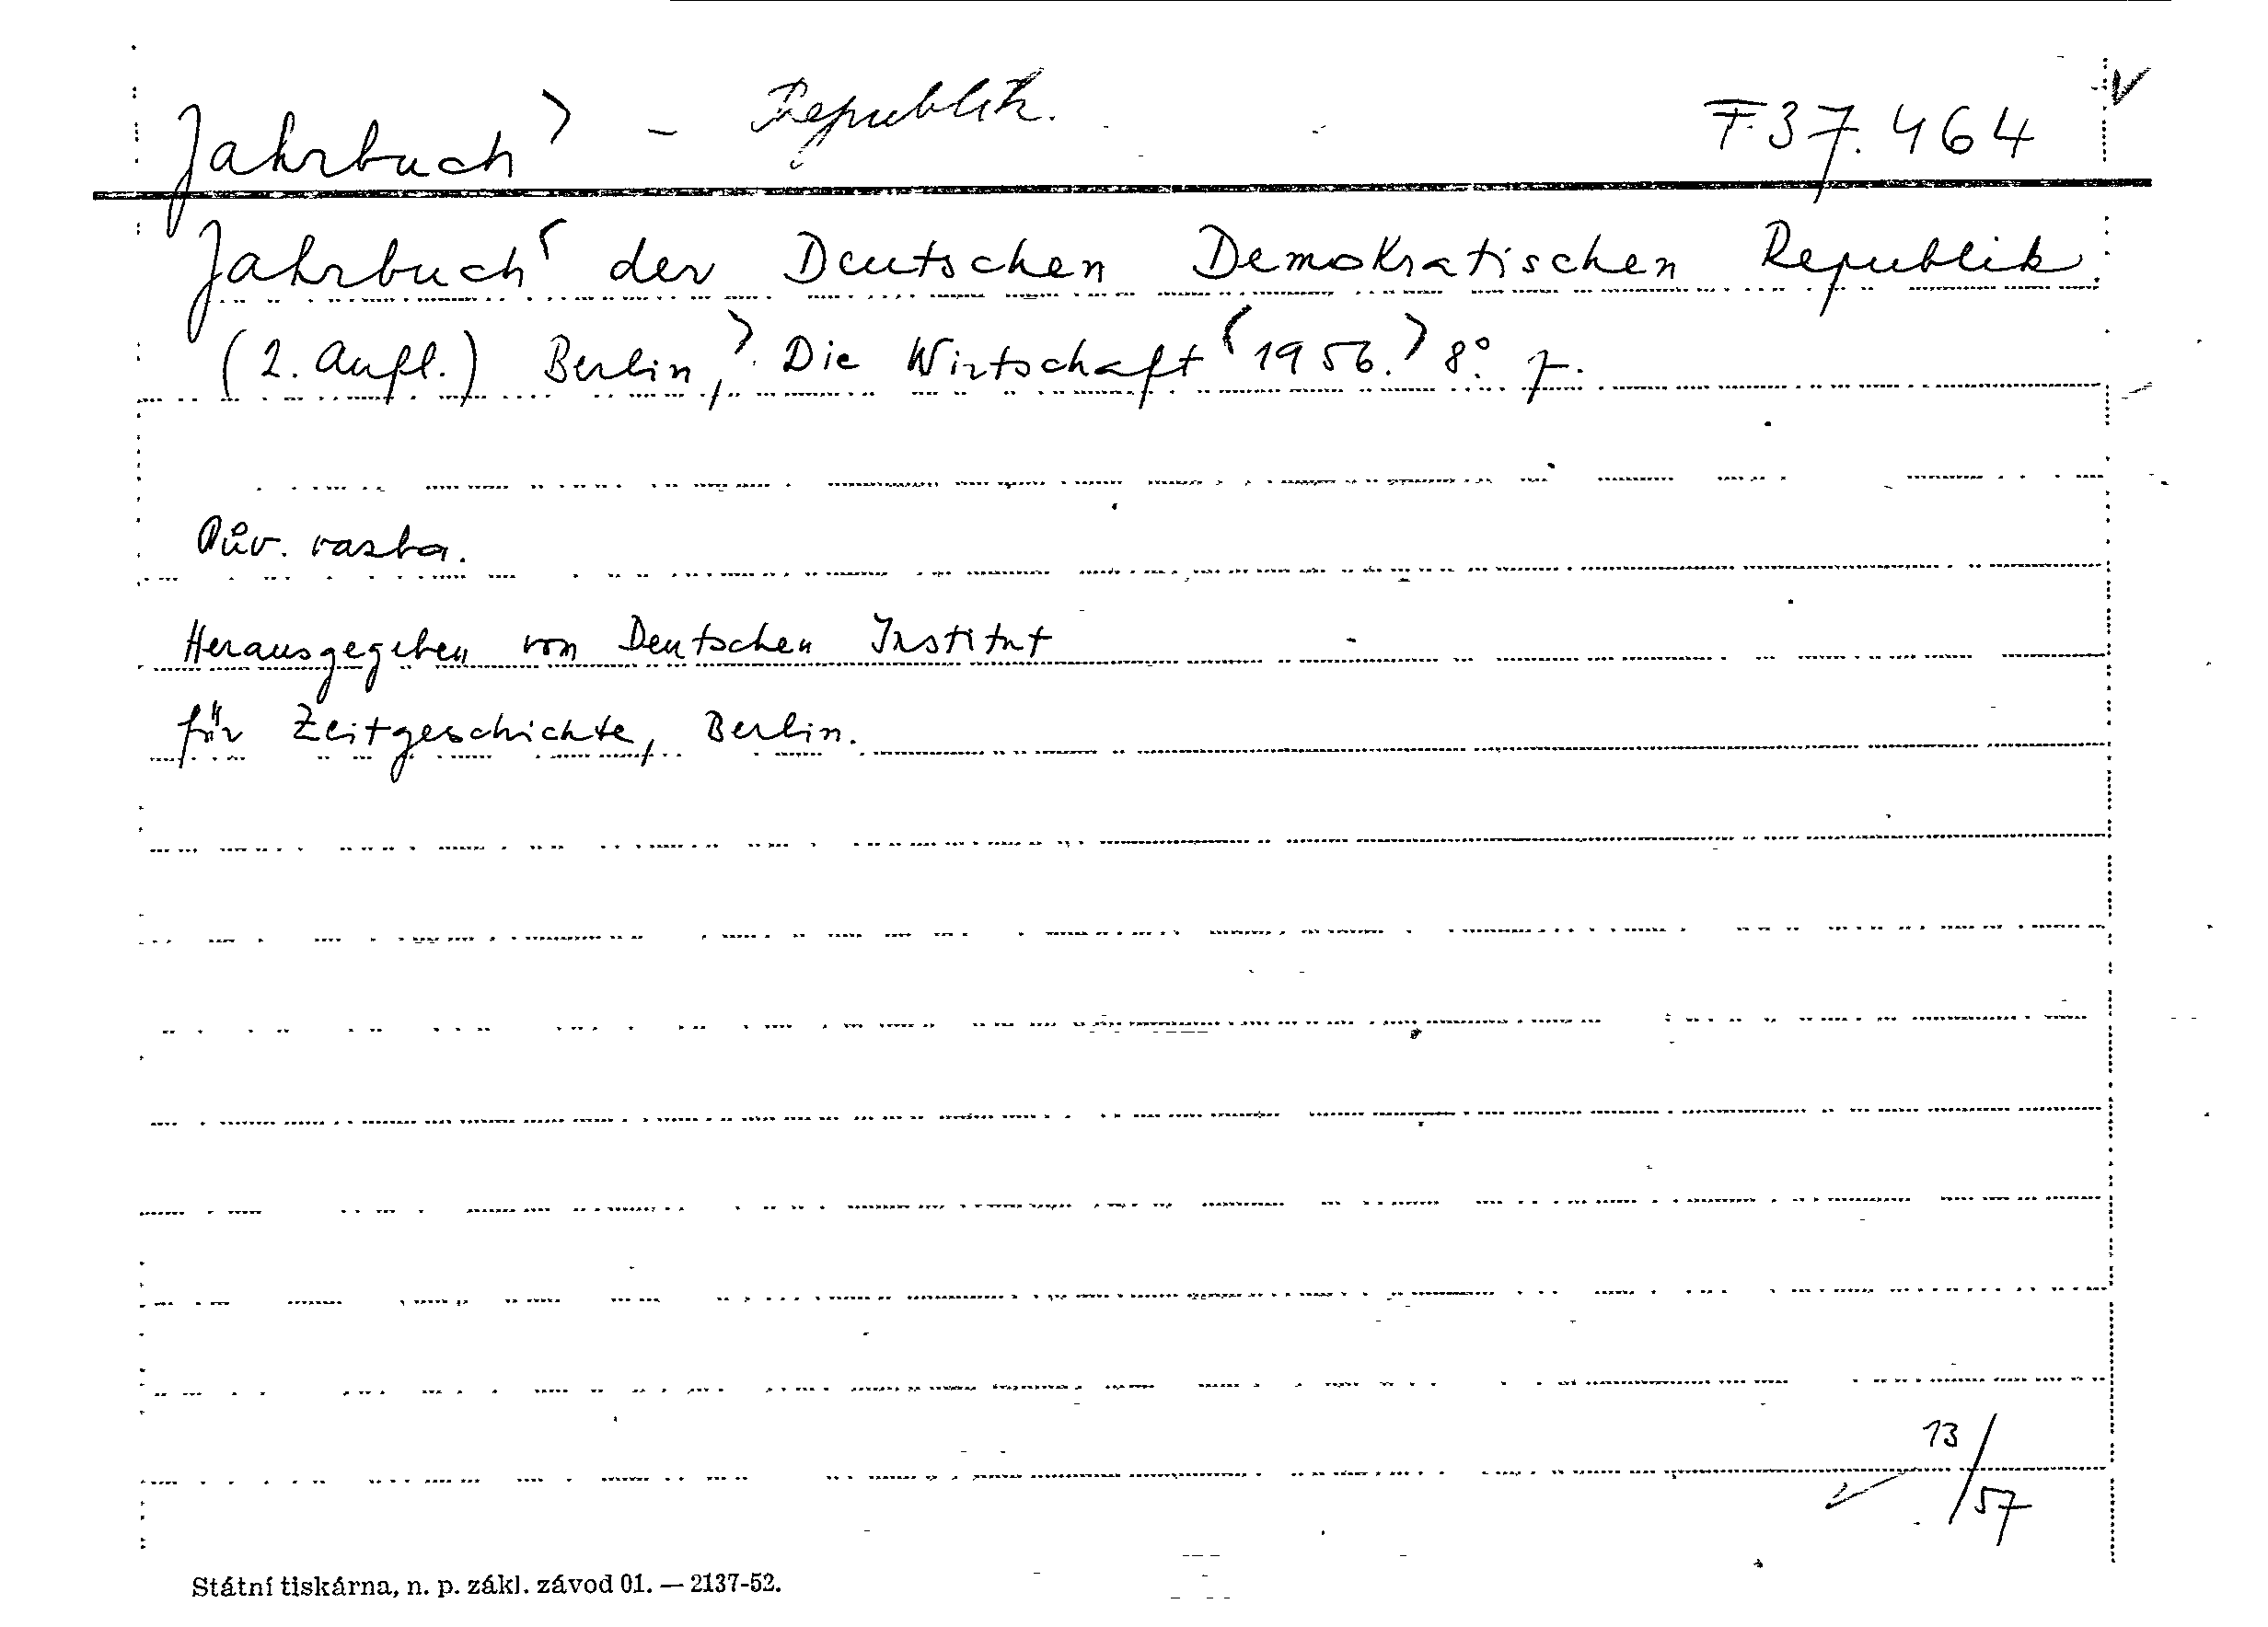 Jahrbuch> - Republik. F 37.464
Jahrbuch< der Deutschen Demokratischen Republik.
(2. Aufl.) Berlin,> Die Wirtschaft <1956.> 8°.
Pův. vazba.
Herausgegeben vom Deutschen Institut
für Zeitgeschichte, Berlin.
13/57
Státní tiskárna, n. p. zákl. závod 01. — 2137-52.